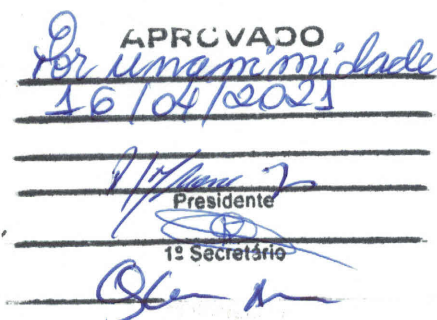 APROVADO
Por unanimidade
16/04/2021
Presidente
1º Secretário